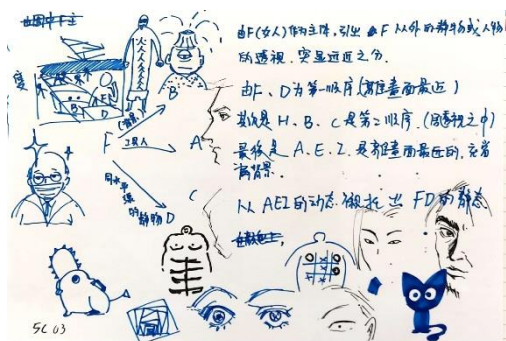 由F(女人)作为主体,引出 F 以外的静物或人物
的透视,突显远近之分.
由F、D为第一顺序(离画面最近)
其次是H、B、C是第二顺序.(同透视之中)
最後是A、E、Z.是离画面最近的,充当
背景.
从AEZ的动态,衬托出FD的静态
B
F
工具人
A
C
同水平
的静物D
SC 03